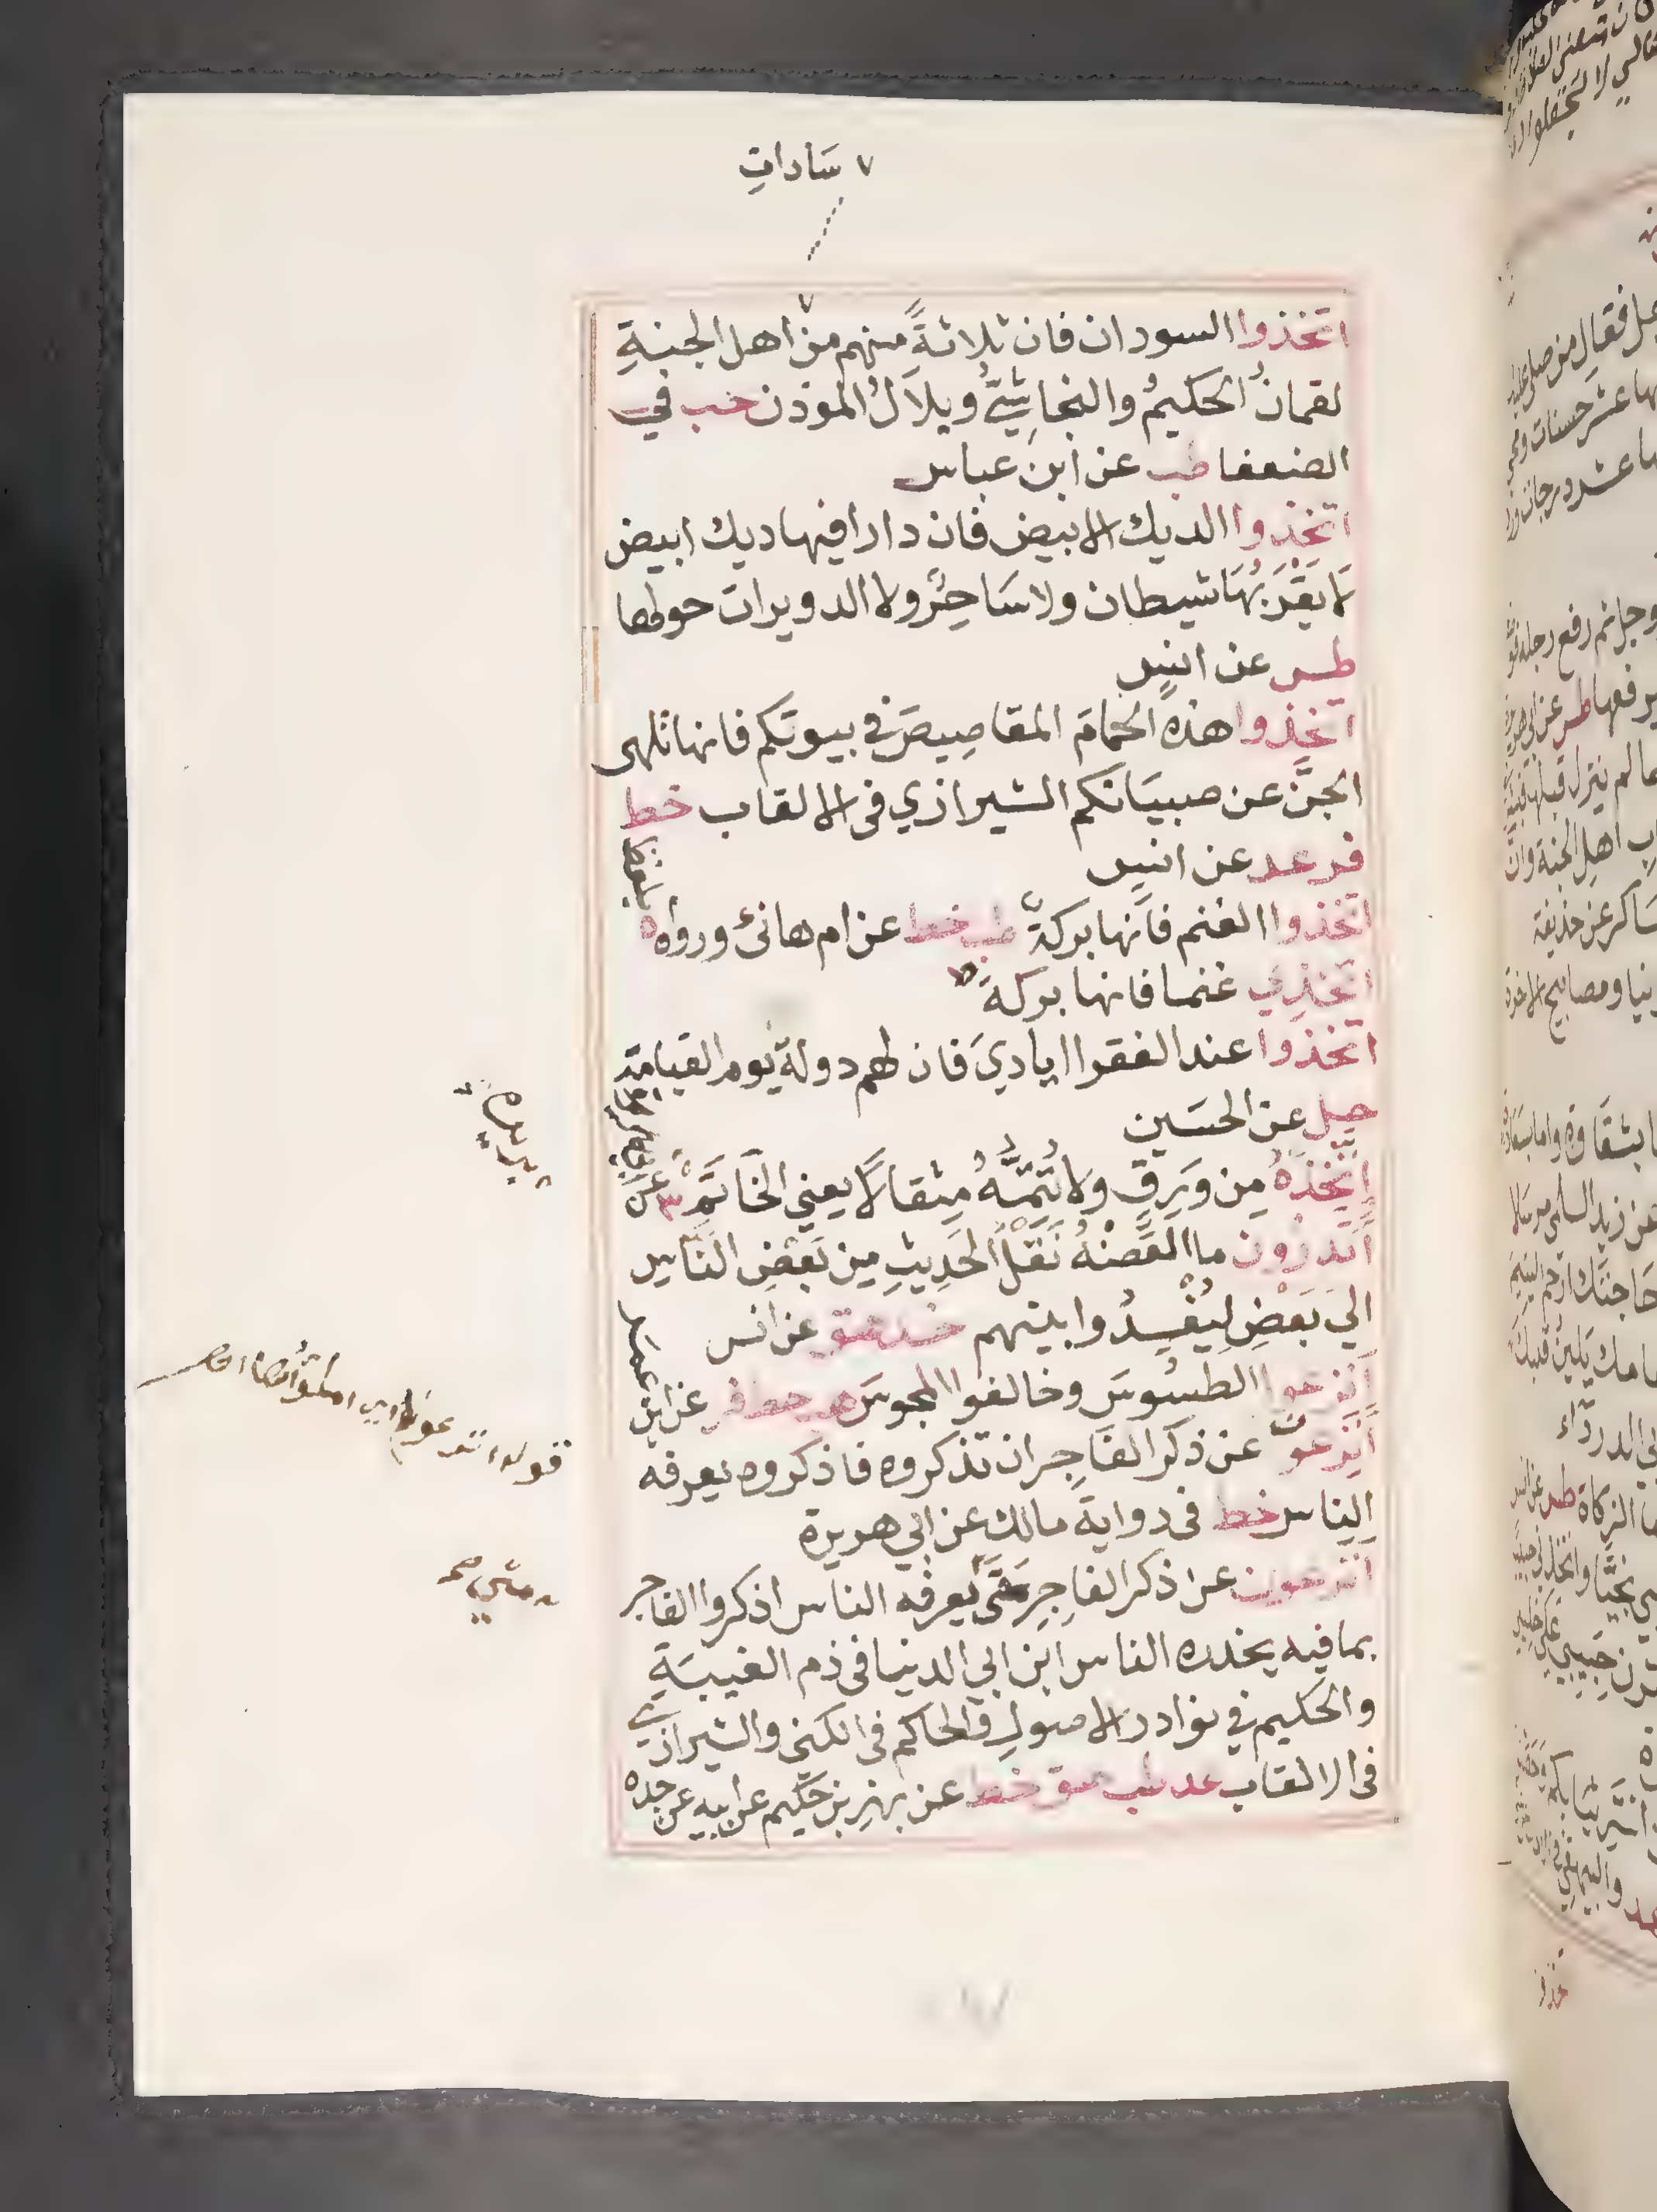 ٧ سَاداتِ
اتخذوا السودان فان ثلاثةً منهم من اهل الجنةِ
لقمانُ الحكيمُ والنجاشيُّ وبلالُ الموذن حب في
الضعفا طب عن ابن عباس
اتخذوا الديك الابيض فان دارا فيها ديك ابيض
لَا يَقْرَبُهَا شيطان ولا سَاحِرٌ ولا الدويرات حولها
طس عن انس
اتخذوا هذه الحمامَ المقاصِيصَ في بيوتكم فانها تلهى
الجنَّ عن صبيَانكم الشيرازي فى الالقاب خط
فر عد عن انس
اتخذوا الغنم فانها بركةٌ طب خط عن ام هانئ ورواه
اتخذِي غنما فانها بركة
اتخذوا عند الفقرا ايادِيَ فان لهم دولة يوم القيامة
حل عن الحسَين
اتَّخِذْهُ مِن وَرِقٍ ولا تُتِمَّهُ مِثقالًا يعني الخَاتَمِ ٣ عن
بريدة
أَتَدرُون ما العَضْهُ نَقْلُ الحَدِيثِ مِن بَعْضِ النَّاسِ
الي بَعْضٍ لِيُفْسِدُوا بينهم خد هق عن انس
اَتْرِعوا الطسُوسَ وخالفوا المجوسَ هب خط فر عن ابن
عمر
اَتَرِعونَ عن ذكر الفَاجِر ان تذكروه فاذكروه يعرفه
الناس خط فى رواية مالك عن ابي هريرة
اترعون عن ذكر الفاجِرِ مَتَى يعرفه الناس اذكروا الفاجر
بما فيه يحذره الناس ابن ابي الدنيا فى ذم الغيبَةِ
والحكيم في نوادر الاصولِ والحاكم فى الكنى والشيرازي
فى الالقاب عد طب هق خط عن بهز بن حكيم عن ابيه عن جده